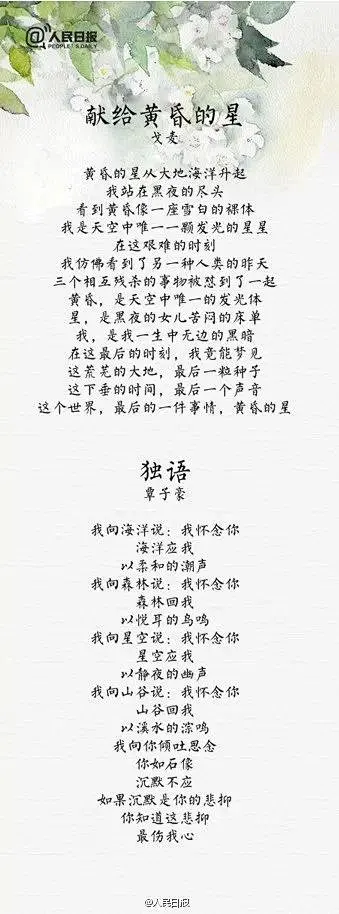 @人民日报
PEOPLE'S DAILY
献给黄昏的星
戈麦
黄昏的星从大地海洋升起
我站在黑夜的尽头
看到黄昏像一座雪白的裸体
我是天空中唯一一颗发光的星星
在这艰难的时刻
我仿佛看到了另一种人类的昨天
三个相互残杀的事物被怼到了一起
黄昏，是天空中唯一的发光体
星，是黑夜的女儿苦闷的床单
我，是我一生中无边的黑暗
在这最后的时刻，我竟能梦见
这荒芜的大地，最后一粒种子
这下垂的时间，最后一个声音
这个世界，最后的一件事情，黄昏的星
独语
覃子豪
我向海洋说：我怀念你
海洋应我
以柔和的潮声
我向森林说：我怀念你
森林回我
以悦耳的鸟鸣
我向星空说：我怀念你
星空应我
以静夜的幽声
我向山谷说：我怀念你
山谷回我
以溪水的淙鸣
我向你倾吐思念
你如石像
沉默不应
如果沉默是你的悲抑
你知道这悲抑
最伤我心
@人民日报